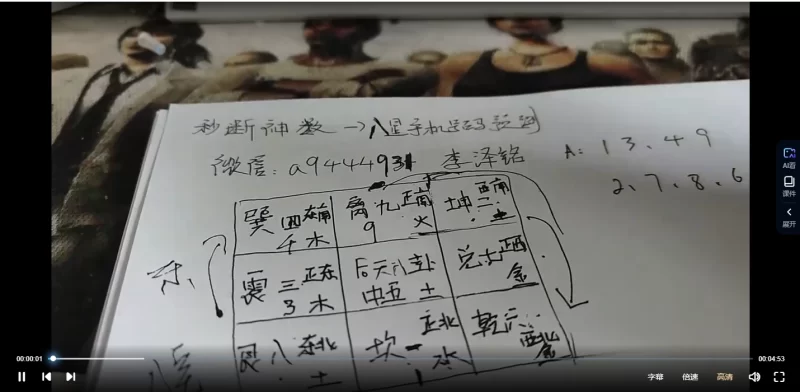 秒断神数→八星手机号码预测
微信:a9444931 李泽铭
A:13、49
2、7、8、6
巽四东南 4 木
离九正南 9 火
坤二西南 土
东
震三正东 3 木
后天八卦 中五土
兑七正西 金
艮八东北 土
坎一正北 1 水
乾六西北 金
AI看
课件
展开
00:00:01
00:04:53
字幕
倍速
高清